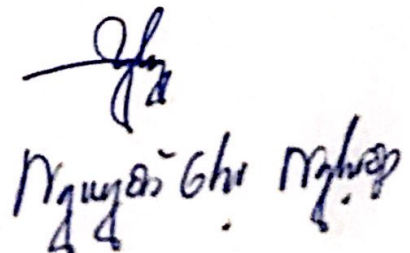 Nguyễn Ghi Nghiệp